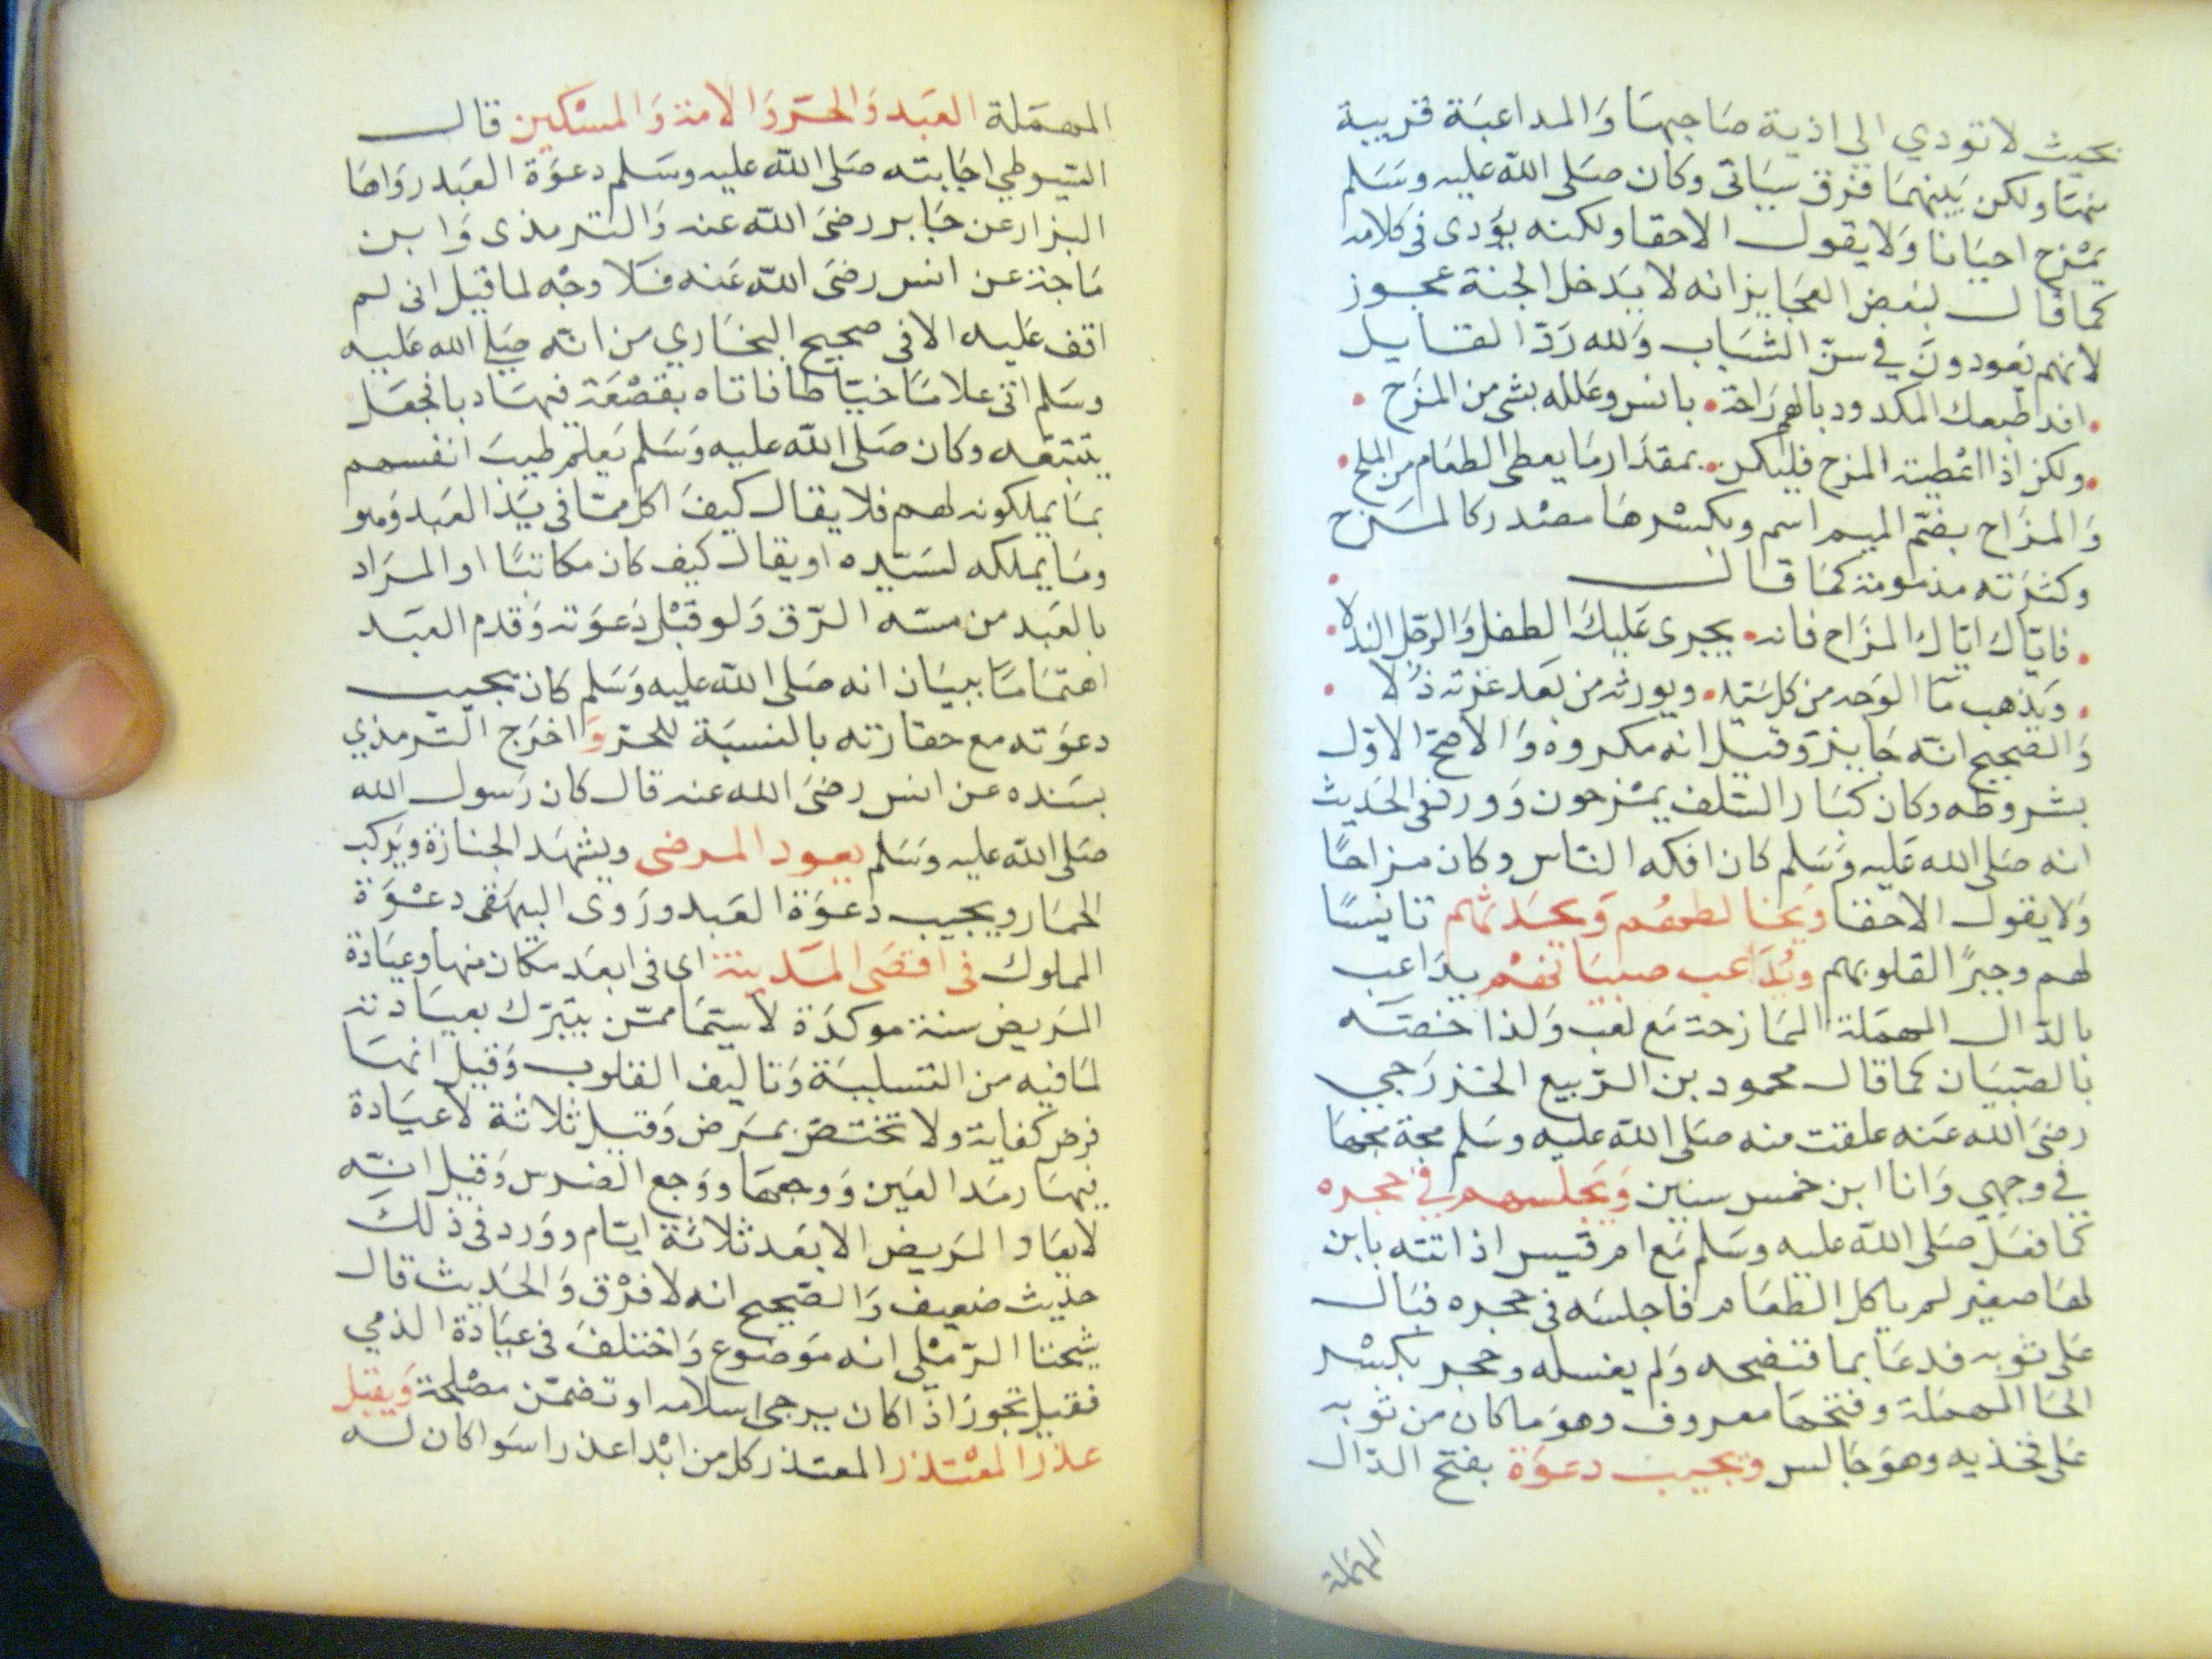 بحيث لا تودي الى اذية صاحبها والمداعبة قريبة
منها ولكن بينهما فرق سياتى وكان صلى الله عليه وسلم
يمزح احيانا ولا يقول الاحقا ولكنه يؤدى فى كلامه
كما قال لبعض العجايز انه لا يدخل الجنة عجوز
لانهم يعودون في سن الشباب ولله رد القايل
افد طبعك المكدود بالهم راحة • بانس وعلله بشى من المزح
ولكن اذا اعطيته المزح فليكن • بمقدار ما يعطى الطعام من الملح
والمزاح بضم الميم اسم وبكسرها مصدر كالمزح
وكثرته مذمومة كما قال
فاياك اياك المزاح فانه • يجرى عليك الطفل والرجل النذلا
ويذهب ما الوجه من كل سيد • ويورثه من بعد عزته ذلا
والصحيح انه جايز وقيل انه مكروه والاصح الاول
بشروطه وكان كبار السلف يمزحون وورد فى الحديث
انه صلى الله عليه وسلم كان افكه الناس وكان مزاحا
ولا يقول الاحقا ويخالطهم ويحدثهم تانيسا
لهم وجبرا لقلوبهم ويداعب صبيانهم يداعب
بالدال المهملة الممازحة مع لعب ولذا خصه
بالصبيان كما قال محمود بن الربيع الخزرجي
رضى الله عنه علقت منه صلى الله عليه وسلم مجة مجها
في وجهي وانا ابن خمس سنين ويجلسهم في حجره
كما فعل صلى الله عليه وسلم مع ام قيس اذ اتته بابن
لها صغير لم ياكل الطعام فاجلسه فى حجره فبال
على ثوبه فدعا بما فنضحه ولم يغسله وحجر بكسر
الحا المهملة وفتحها معروف وهو ما كان من ثوبه
على فخذيه وهو جالس ويجيب دعوة بفتح الدال
المهملة
المهملة العبد والحر والامة والمسكين قال
السيوطي اجابته صلى الله عليه وسلم دعوة العبد رواها
البزار عن جابر رضى الله عنه والترمذى وابن
ماجة عن انس رضى الله عنه فلا وجه لما قيل انى لم
اقف عليه الا فى صحيح البخاري من انه صلى الله عليه
وسلم اتى غلاما خياطا فاتاه بقصعة فيها دبا فجعل
يتتبعه وكان صلى الله عليه وسلم يعلم طيب انفسهم
بما يملكونه لهم فلا يقال كيف اكل مما فى يد العبد وهو
وما يملكه لسيده او يقال كيف كان مكاتبا او المراد
بالعبد من مسه الرق ولو قبل دعوته وقدم العبد
اهتماما ببيان انه صلى الله عليه وسلم كان يجيب
دعوته مع حقارته بالنسبة للحر واخرج الترمذي
بسنده عن انس رضى الله عنه قال كان رسول الله
صلى الله عليه وسلم يعود المرضى ويشهد الجنازة ويركب
الحمار ويجيب دعوة العبد وروى البيهقى دعوة
المملوك فى اقصى المدينة اى فى ابعد مكان منها وعيادة
المريض سنة موكدة لا سيما ممن يتبرك بعيادته
لما فيه من التسلية وتاليف القلوب وقيل انها
فرض كفاية ولا تختص بمرض وقيل ثلاثة لا عيادة
فيها رمد العين ووجعها ووجع الضرس وقيل انه
لا يعاد المريض الا بعد ثلاثة ايام وورد فى ذلك
حديث ضعيف والصحيح انه لا فرق والحديث قال
شيخنا الرملى انه موضوع واختلف فى عيادة الذمي
فقيل تجوز اذا كان يرجى اسلامه او تضمن مصلحة ويقبل
عذر المعتذر المعتذر كل من ابدا عذرا سوا كان له